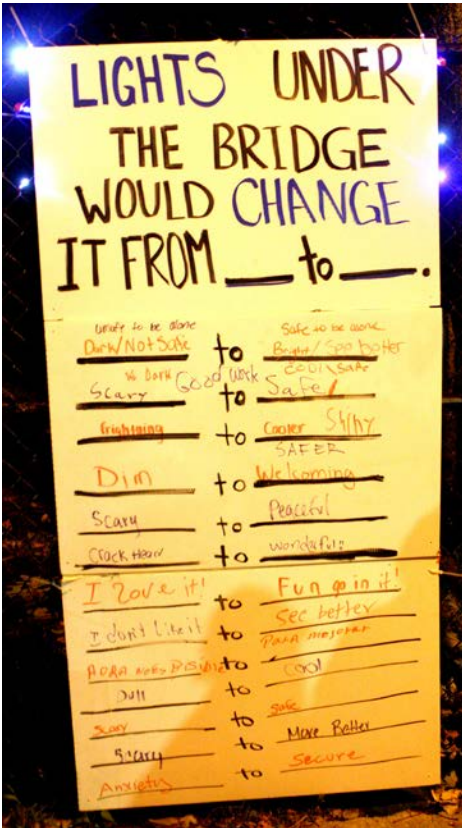 LIGHTS UNDER
THE BRIDGE
WOULD CHANGE
IT FROM ___ to ___.
unsafe to be alone Safe to be alone
Dark/Not Safe to Bright/ See better
Dark Good work cool safe
Scary to Safe
frightning to Cooler Shiny
SAFER
Dim to Welcoming
Scary to Peaceful
Crack Heav to wonderful
I love it! to Fun go in it!
I don't like it to See better
to Para mejorar
Dull to cool
Scary to safe
Scary to More Better
Anxiety to Secure